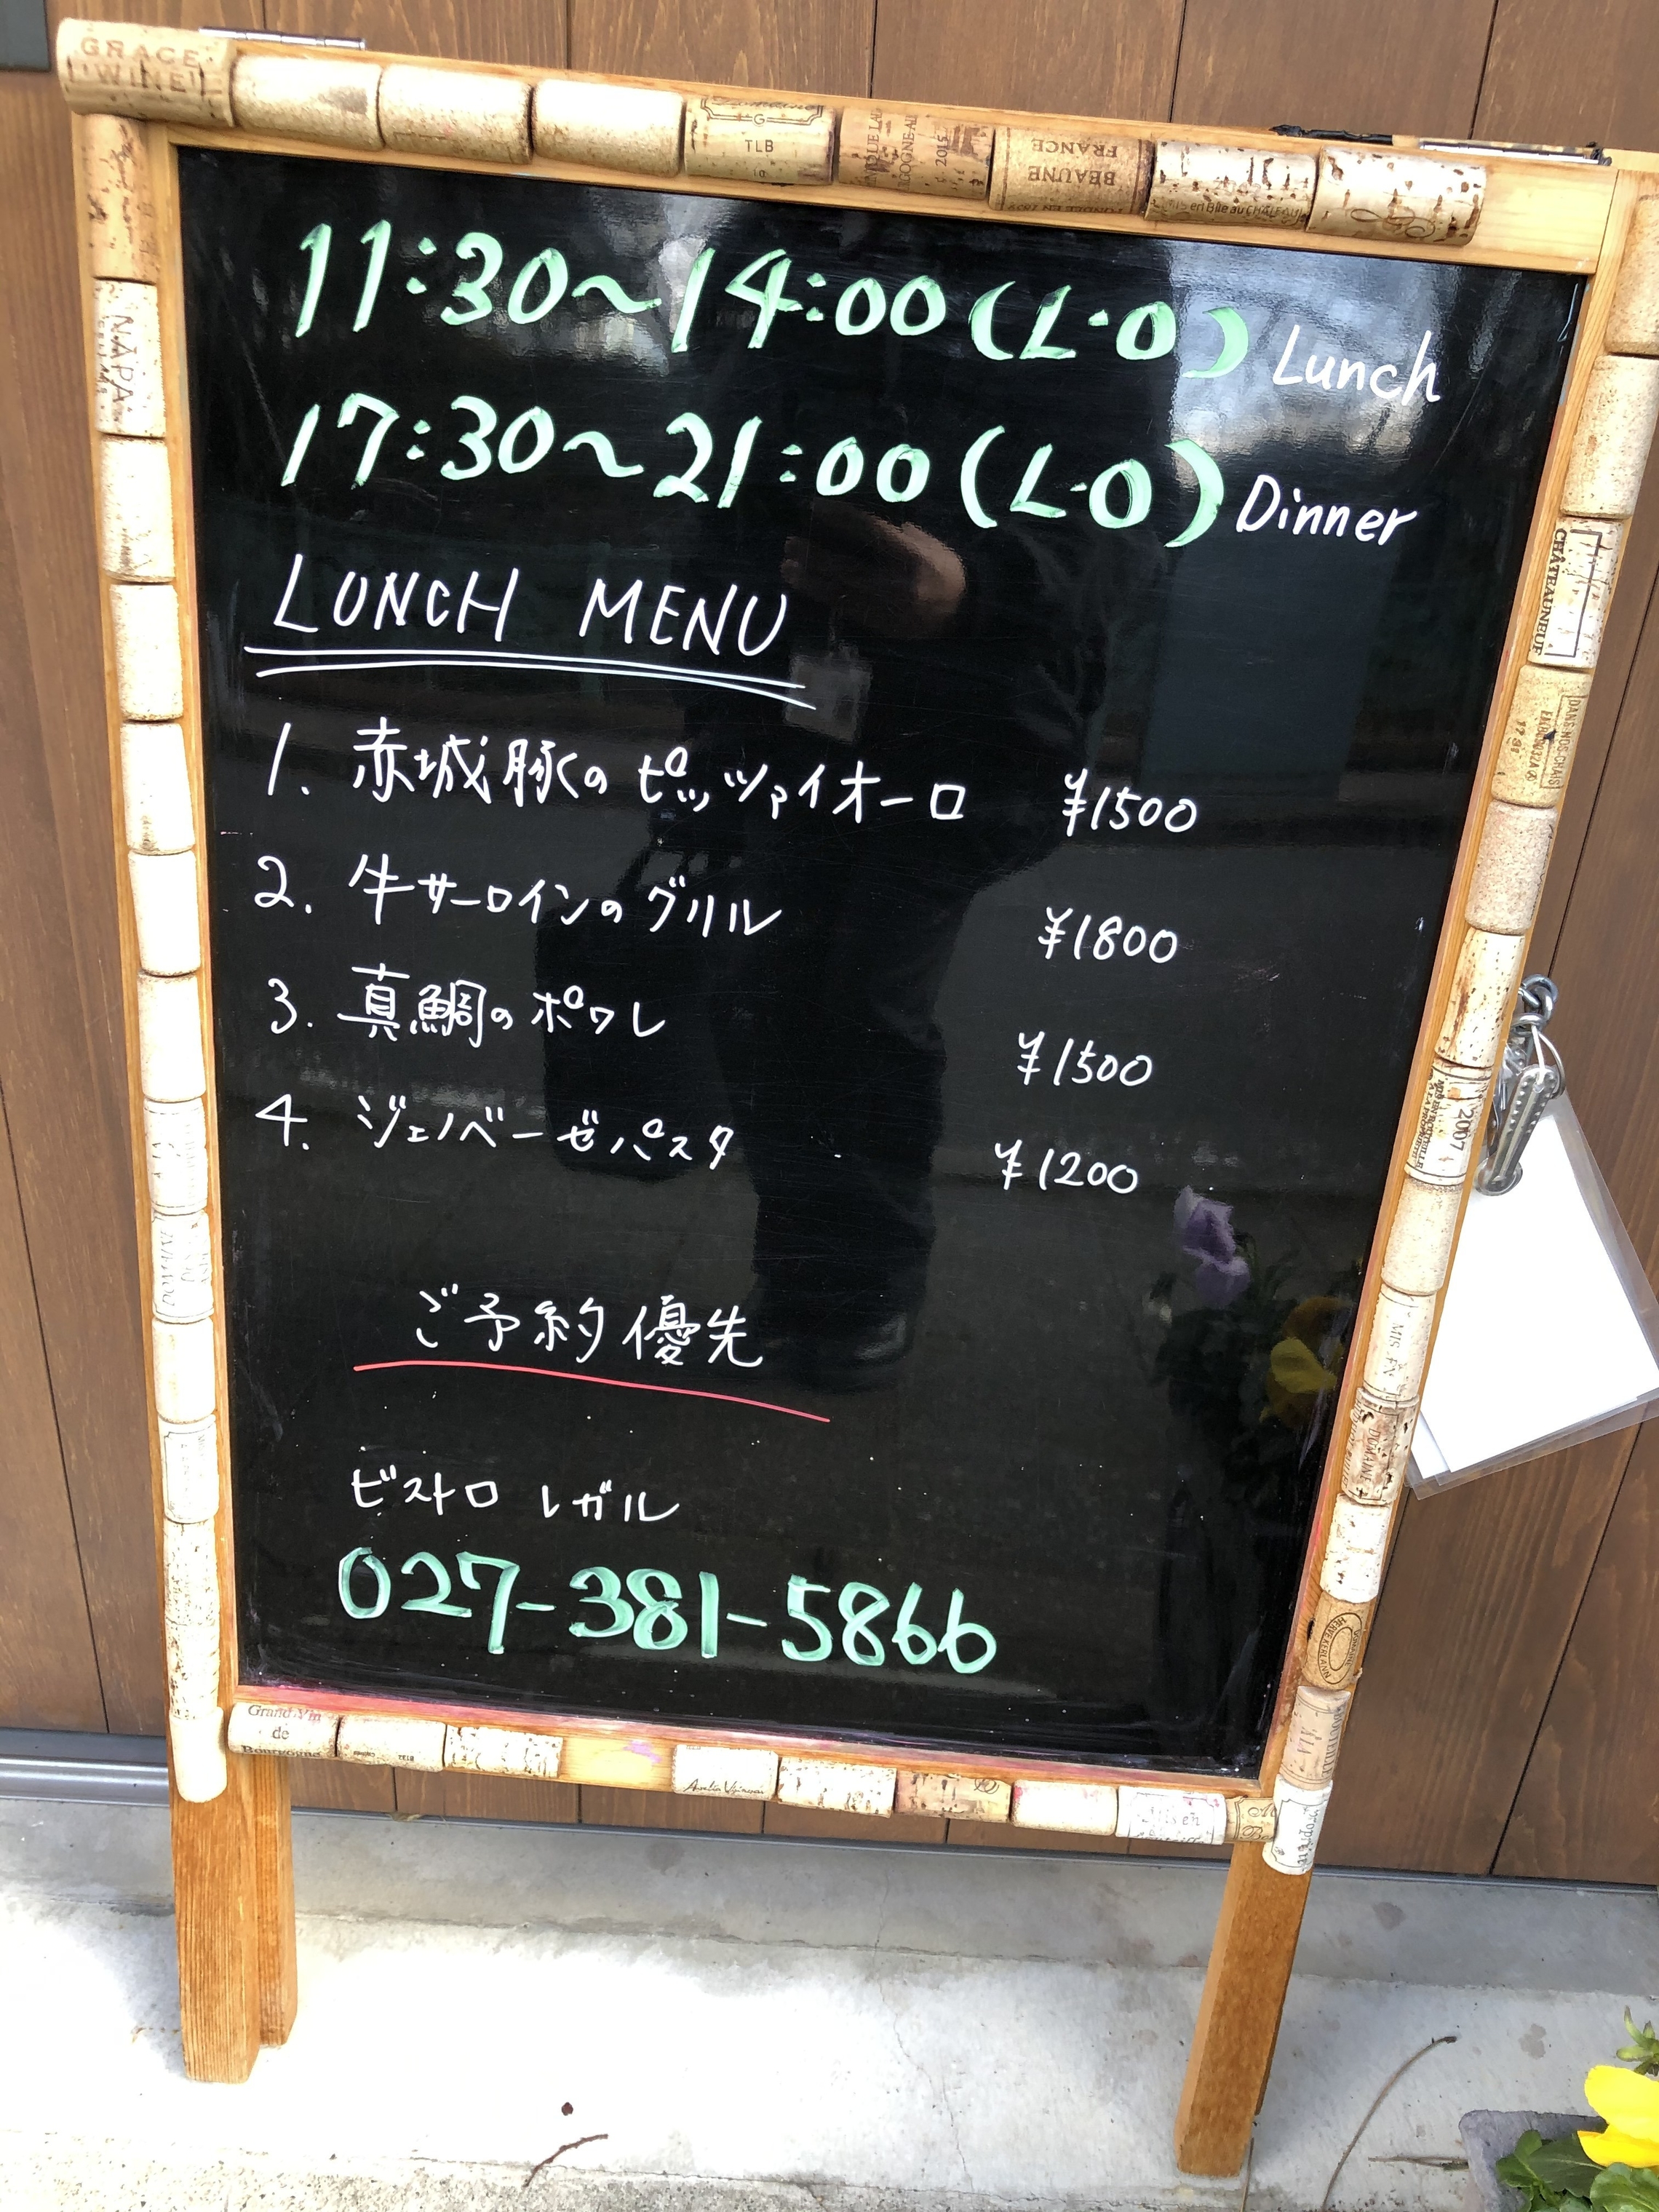 GRACE WINE
TLB
BEAUNE
FRANCE
NAPA
CHÂTEAUNEUF
2007
DOMAINE
Grand Vin
de
Bourgogne
11:30～14:00(L・O) Lunch
17:30～21:00(L・O) Dinner
LUNCH MENU
1. 赤城豚のピッツァイオーロ ¥1500
2. 牛サーロインのグリル ¥1800
3. 真鯛のポワレ ¥1500
4. ジェノベーゼパスタ ¥1200
ご予約優先
ビストロ レガル
027-381-5866